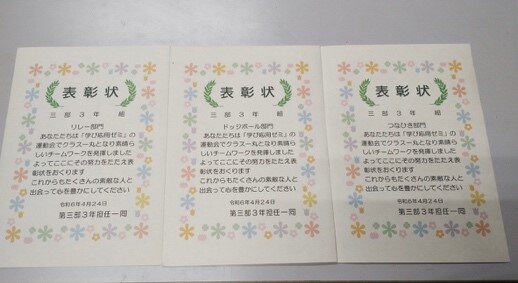 表彰状
三部3年　組
リレー部門
あなたたちは「学び応用ゼミ」の
運動会でクラス一丸となり素晴ら
しいチームワークを発揮しました
よってここにその努力をたたえ表
彰状をおくります
これからもたくさんの素敵な人と
出会って心を豊かにしてください
令和6年4月24日
第三部3年担任一同
表彰状
三部3年　組
ドッジボール部門
あなたたちは「学び応用ゼミ」の
運動会でクラス一丸となり素晴ら
しいチームワークを発揮しました
よってここにその努力をたたえ表
彰状をおくります
これからもたくさんの素敵な人と
出会って心を豊かにしてください
令和6年4月24日
第三部3年担任一同
表彰状
三部3年　組
つなひき部門
あなたたちは「学び応用ゼミ」の
運動会でクラス一丸となり素晴ら
しいチームワークを発揮しました
よってここにその努力をたたえ表
彰状をおくります
これからもたくさんの素敵な人と
出会って心を豊かにしてください
令和6年4月24日
第三部3年担任一同